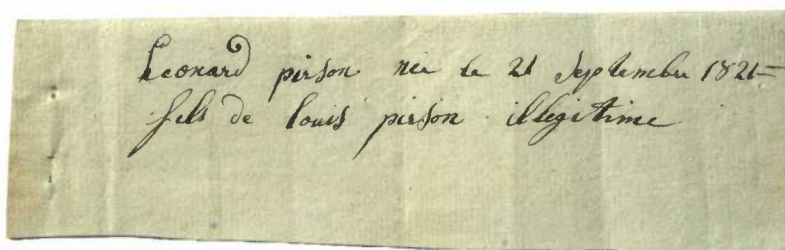 Leonard pirson née le 21 September 1821
fils de louis pirson illegitime